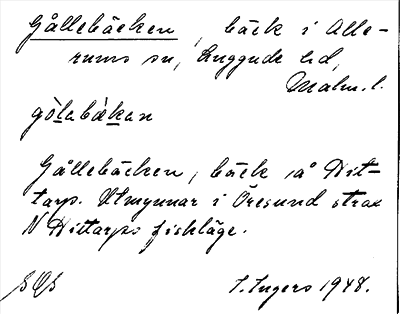 Gållebäcken, bäck i Alle-
rums sn, Luggude hd,
Malm. l.
gòlabækan
Gållebäcken, bäck på Hit-
tarp. Utmynnar i Öresund strax
N Hittarps fiskläge.
I. Ingers 1948.